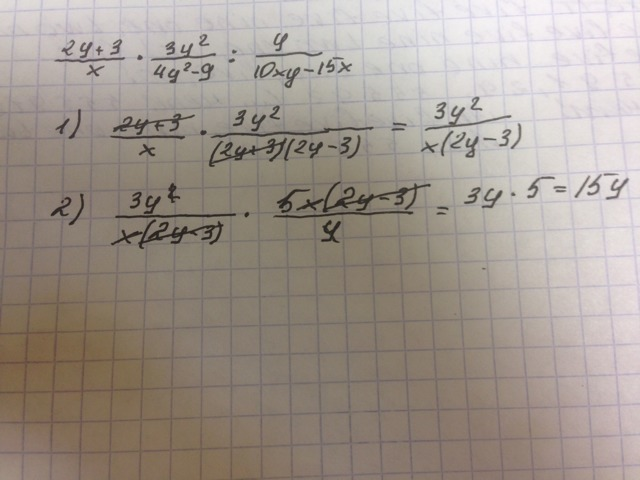 (2y+3)/x · 3y²/(4y²-9) : y/(10xy-15x)
1) (2y+3)/x · 3y²/((2y+3)(2y-3)) = 3y²/(x(2y-3))
2) 3y²/(x(2y-3)) · 5x(2y-3)/y = 3y · 5 = 15y